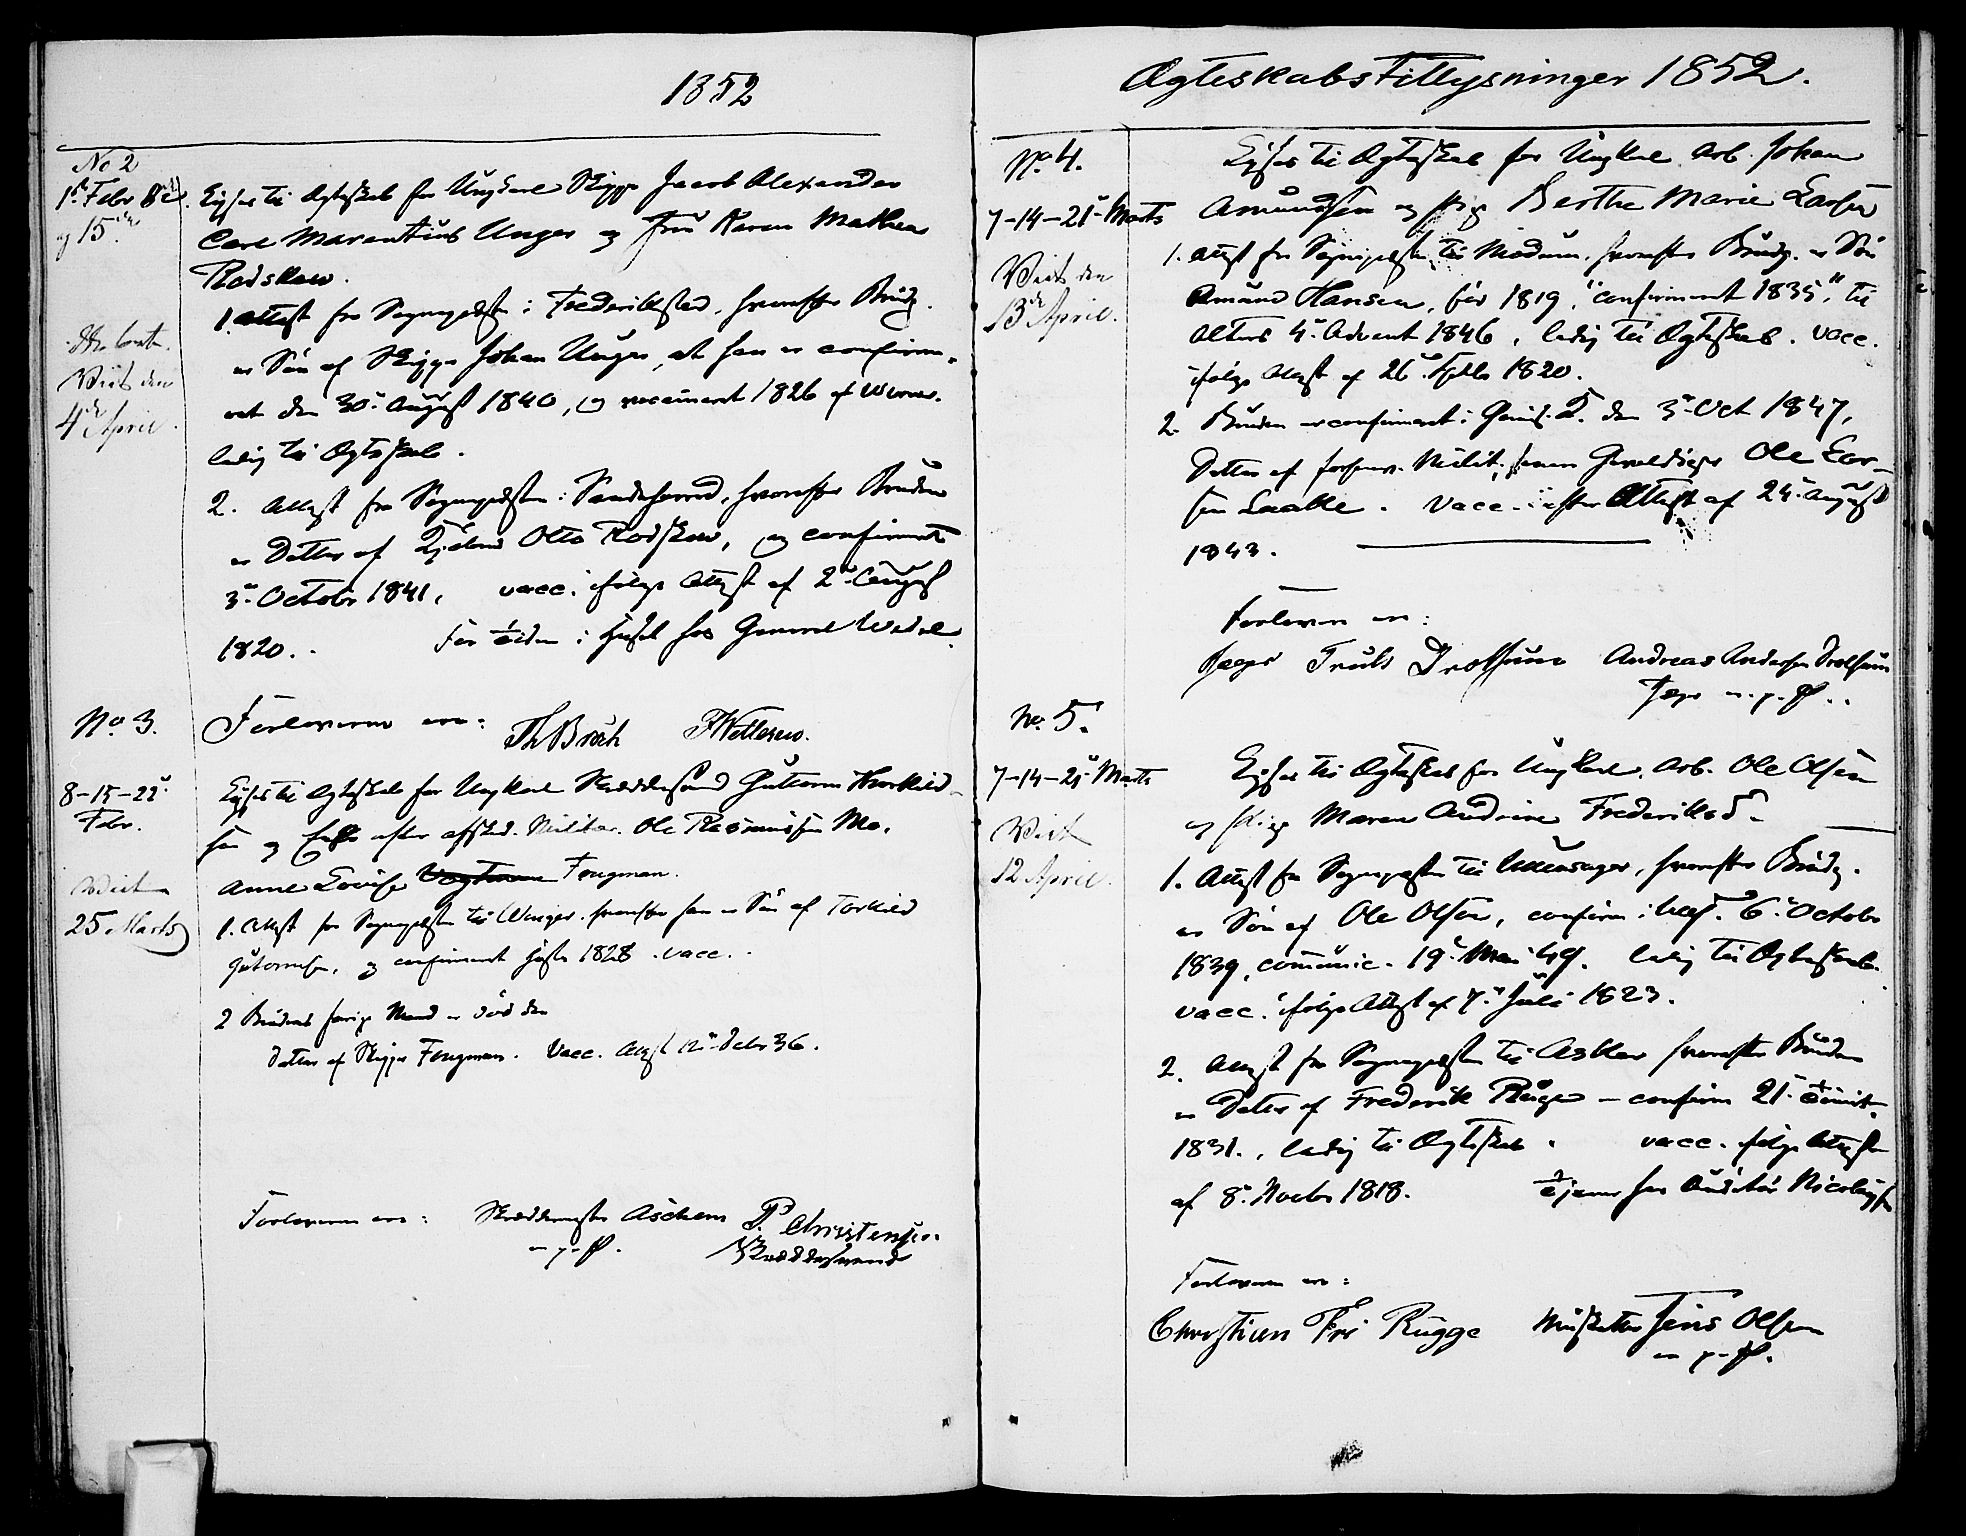 1852
No 2
1ste Febr 8de
og 15de
Viet den
4de April.
Lyses til Ægteskab for Ungkarl Skipper Jacob Alexander
Carl Marentius Unger og Frøken Karen Mathea
Rodskow.
1. Attest fra Sognepresten i Frederikstad, hvorefter Brudg.
er Søn af Skipper Johan Unger, at han er confirme-
ret den 30. August 1840, og vaccineret 1826 af
ledig til Ægteskab.
2. Attest fra Sognepresten i Sandeherred, hvorefter Bruden
er Datter af Otto Rodskow, og confirmeret
3. Octobr 1841, vacc. ifølge Attest af 2. August
1820. For tiden i Huset hos General Wedel.
No. 3.
Forloverne ere:
Th Broch
F Wettesen.
8-15-22
Febr.
Viet
25 Marts
Lyses til Ægteskab for Ungkarl Skræddersvend Guttorm Thorkild-
sen og Enke efter afsked. Militær Ole Rasmussen Mo,
Anne Lovise Fongman.
1. Attest fra Sognepresten til Winger, hvorefter han er Søn af Torkild
Guttormsen, og confirmeret Høsten 1828. vacc.
2 Brudens forrige Mand er død den
Datter af Skipper Fongman. Vacc. Attest 12. Febr 36.
Forloverne ere: Skræddermester Aschem P. Christensen.
m. p. P. Skræddersvend
Ægteskabs Tillysninger 1852.
No. 4.
7-14-21. Marts
Viet den
13de April.
Lyses til Ægteskab for Ungkarl Arb. Johan
Amundsen og Pige Berthe Marie Larsen
1. Attest fra Sognepresten til Modum, hvorefter Brudg. er Søn
Amund Hansen, før 1819, confirmeret 1835, til
Alters 4. Advent 1846, ledig til Ægteskab. vacc.
ifølge Attest af 26. Septbr 1820.
2. Bruden er confirmeret i Garnis. K. den 3. Oct 1847,
Datter af Ole Lar-
sen Laake. Vacc. efter Attest af 24. August
1843.
Forlovere ere:
Jæger Truls Drolsum Andreas Andersen Drolsum
Jæger m. p. P.
No. 5.
7-14-21. Marts
Viet
12 April.
Lyses til Ægteskab for Ungkarl Arb. Ole Olsen
og Pige Maren Andrine Frederiksd.
1. Attest fra Sognepresten til Ullensager, hvorefter Brudg.
er Søn af Ole Olsen, confirm i 6. Octobr
1839, communic. 19. Mai 49. ledig til Ægteskab.
vacc. ifølge Attest af 7. Juli 1823.
2. Attest fra Sognepresten til Asker hvorefter Bruden
er Datter af Frederik Rugge - confirm 21. trinit.
1831., ledig til Ægteskab. vacc. ifølge Attest
af 8. Novbr 1818. tjener hos Auditør Nicolaysen
Forloverne ere:
Christian Fr Rugge Musketer Jens Olsen
m. p. P.